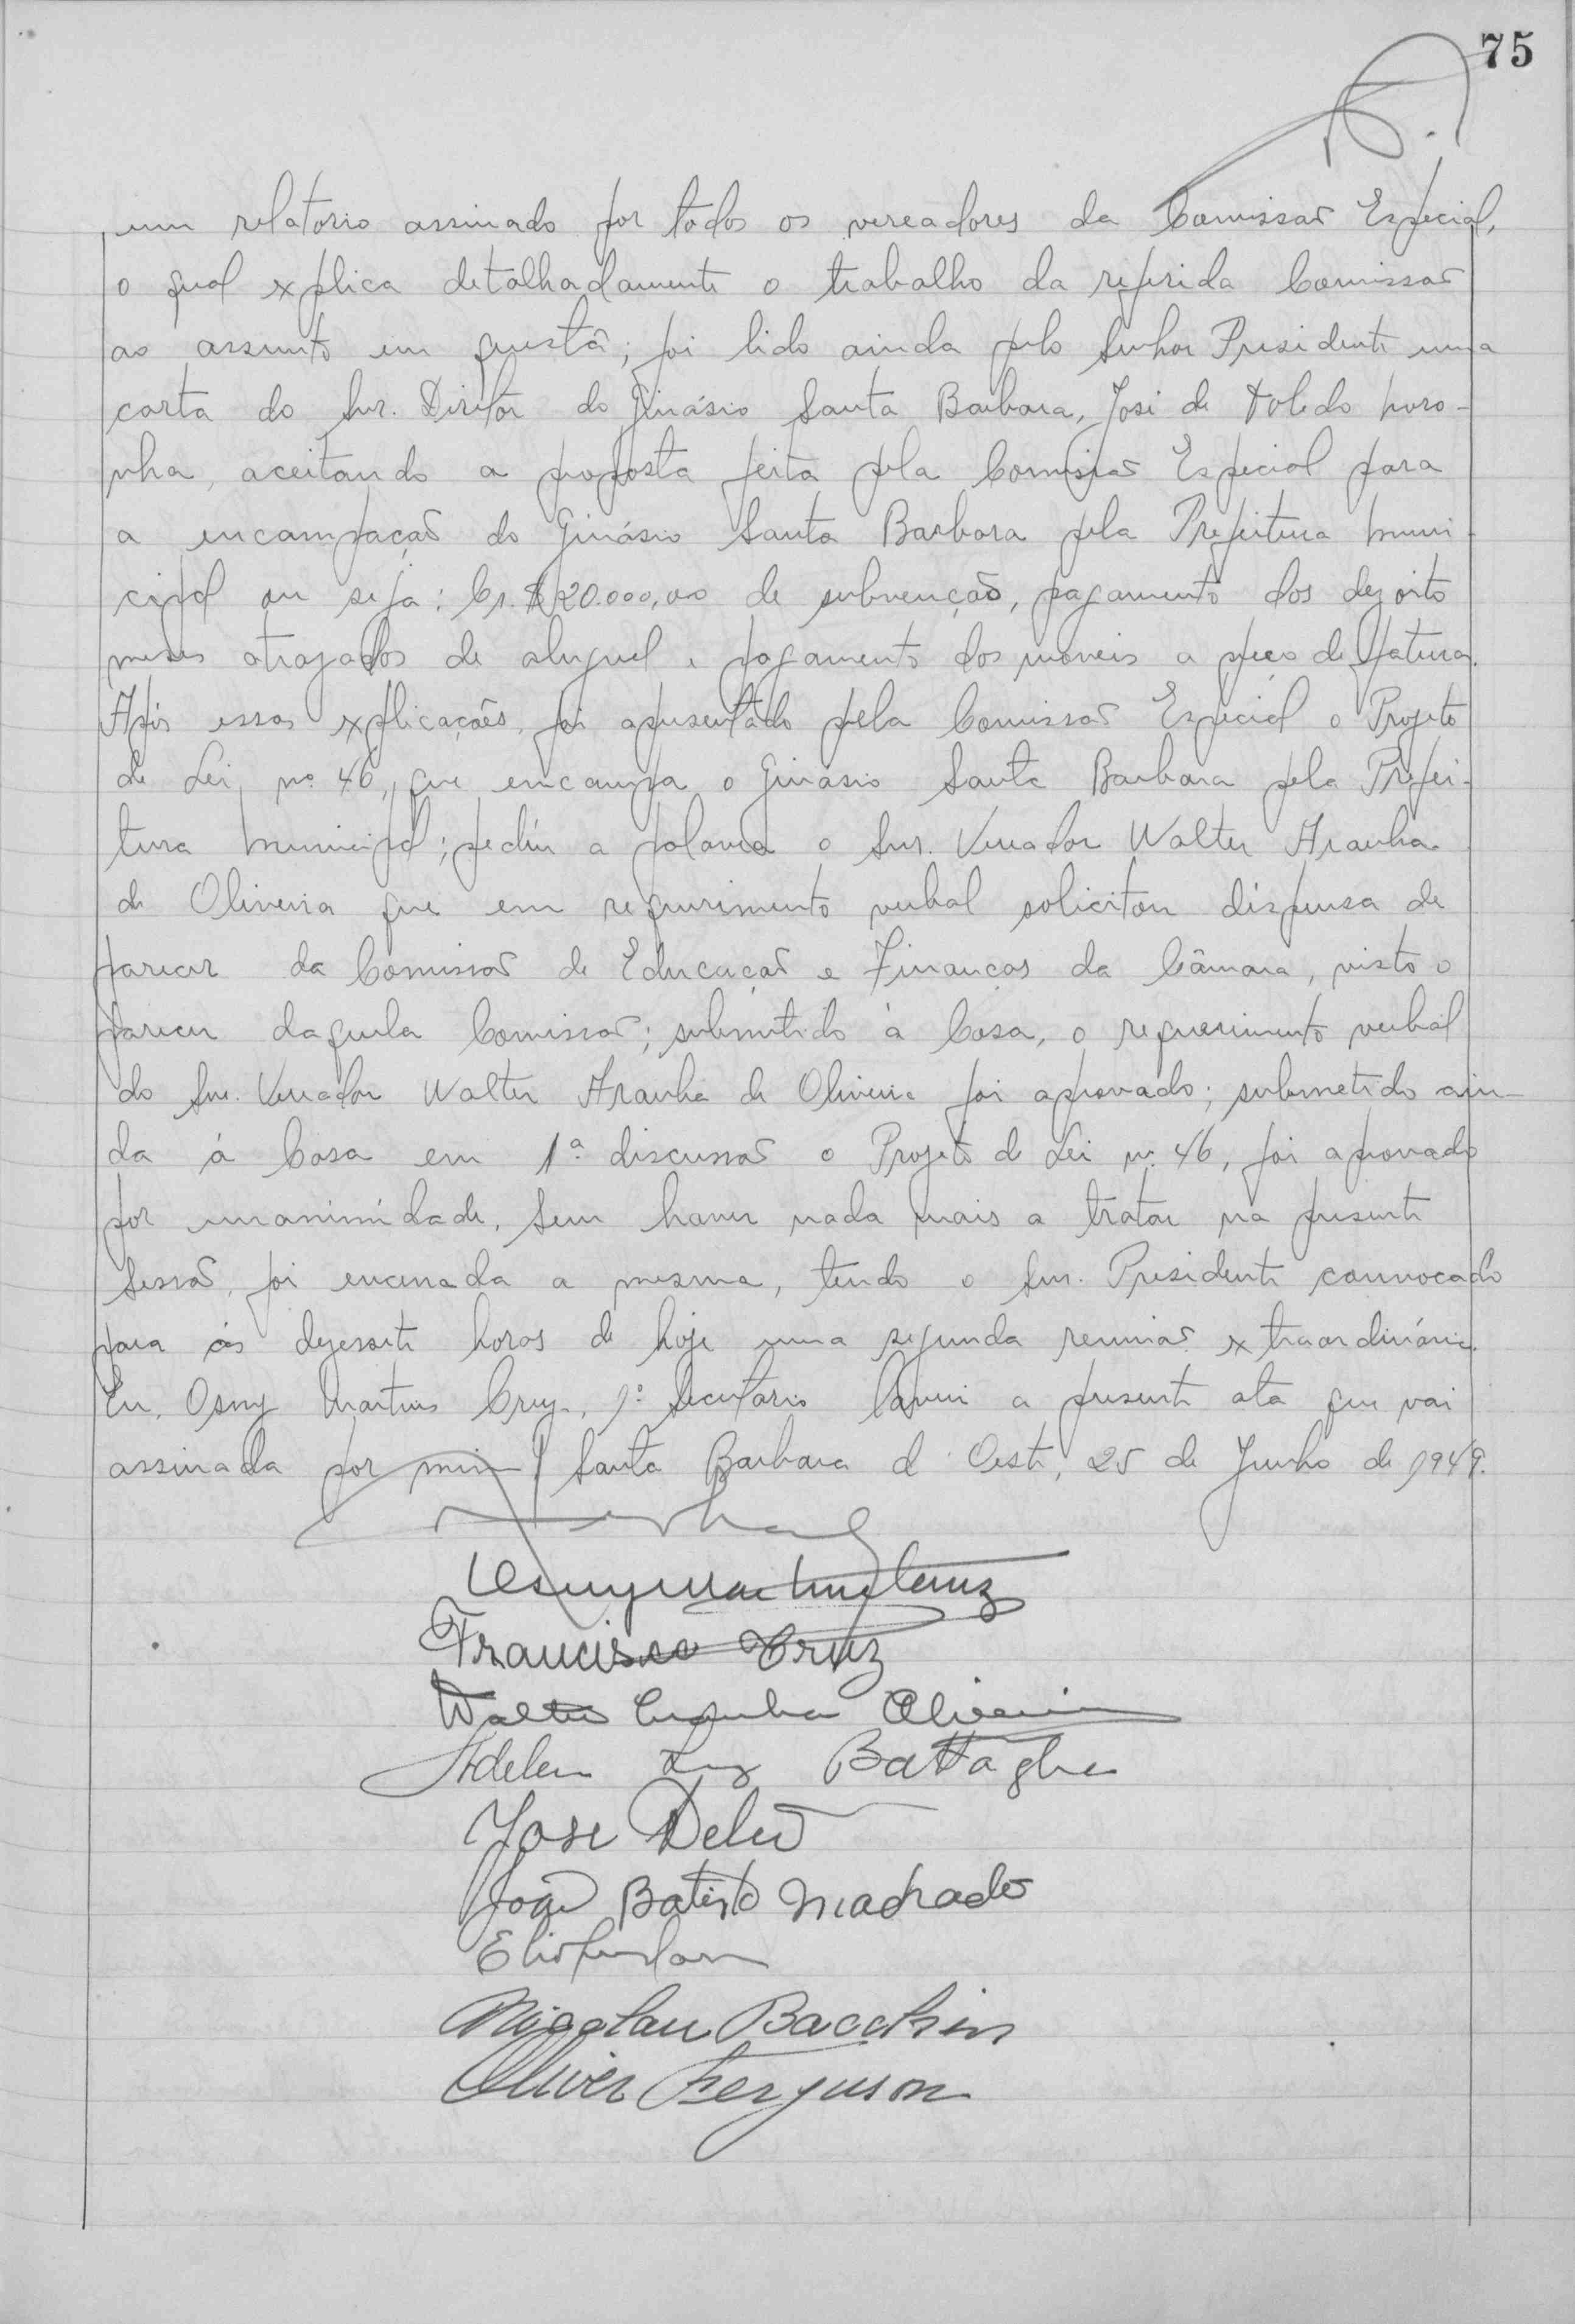 75
um relatorio assinado por todos os vereadores da Comissão Especial,
o qual explica detalhadamente o trabalho da referida Comissão
ao assunto em questã; foi lido ainda pelo Senhor Presidente uma
carta do Snr. Diretor do Ginásio Santa Barbara, José de Toledo Noro-
nha, aceitando a proposta feita pela Comissão Especial para
a encampação do Ginásio Santa Barbara pela Prefeitura Muni-
cipal ou seja: Cr.$ 20.000,00 de subvenção, pagamento dos dezoito
meses atrazados de aluguel e pagamento dos moveis a preço de fatura.
Após essas explicações, foi apresentado pela Comissão Especial o Projeto
de Lei, nº 46, que encampa o Ginásio Santa Barbara pela Prefei-
tura Municipal; pediu a palavra o Snr. Vereador Walter Aranha
de Oliveira que em requerimento verbal solicitou dispensa de
parecer da Comissão de Educação e Finanças da Câmara, visto o
parecer daquela Comissão; submetido à Casa, o requerimento verbal
do Snr. Vereador Walter Aranha de Oliveira foi aprovado; submetido ain-
da á Casa em 1ª discussão o Projeto de Lei nº 46, foi aprovado
por unanimidade. Sem haver nada mais a tratar na presente
Sessão, foi encerrada a mesma, tendo o Snr. Presidente convocado
para ás dezessete horas de hoje uma segunda reunião extraordinária.
Eu, Osny Martins Cruz, 1º Secretário lavrei a presente ata que vai
assinada por mim Santa Barbara d'Oeste, 25 de Junho de 1949.
Osny Martins Cruz
Francisco Cruz
Walter Aranha Oliveira
Battaglia
José Delu
João Batista Machado
Nicolau Bacchin
Oliver Ferguson